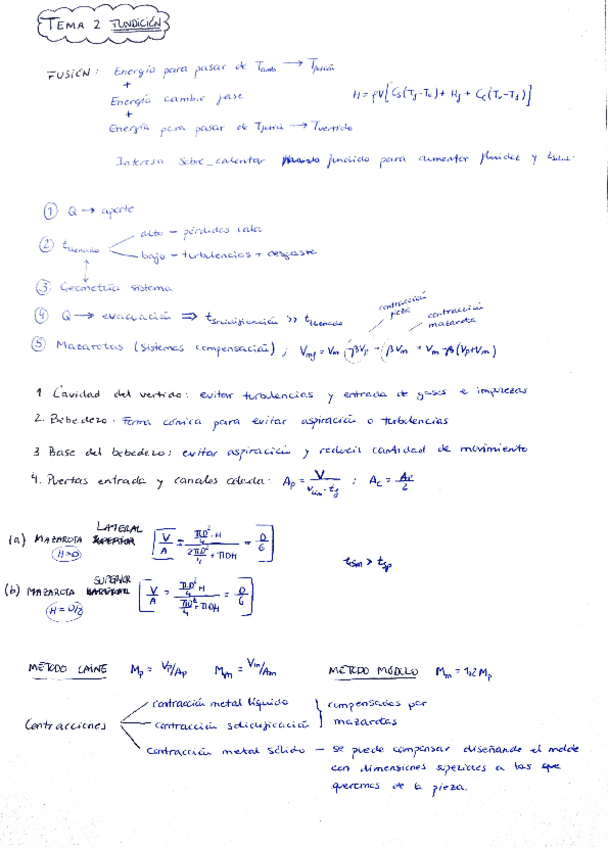 TEMA 2 FUNDICIÓN
FUSIÓN: Energía para pasar de Tamb → Tfusión
+
Energía cambio fase
H = ρV[Cs(Tf-To) + Hf + CL(Tv-Tf)]
+
Energía para pasar de Tfusión → Tvertido
Interesa sobre_calentar fundido para aumentar fluidez y tsolid.
① Q → aporte
② tllenado
alto - pérdidas calor
bajo - turbulencias + desgaste
③ Geometría sistema
④ Q → evacuación ⇒ tsolidificación >> tllenado
contracción pieza
contracción mazarota
⑤ Mazarotas (sistemas compensación); Vmf = Vm - βVp - βVm = Vm - β(Vp+Vm)
1 Cavidad del vertido: evitar turbulencias y entrada de gases e impurezas
2. Bebedero: Forma cónica para evitar aspiración o turbulencias
3 Base del bebedero: evitar aspiración y reducir cantidad de movimiento
4. Puertas entrada y canales colada: Ap = V/(vlim · tf) ; Ac =
(a) MAZAROTA LATERAL [V/A = (πD²/4 · H)/(2πD²/4 + πDH) = D/6]
(H=D)
tsm > tsp
(b) MAZAROTA SUPERIOR [V/A = (πD²/4 · H)/(πD²/4 + πDH) = D/6]
(H = D/2)
MÉTODO CAINE Mp = Vp/Ap Mm = Vm/Am MÉTODO MÓDULO Mm = 1,2 Mp
Contracciones
contracción metal líquido
contracción solidificación
} compensadas por mazarotas
contracción metal sólido - se puede compensar diseñando el molde
con dimensiones superiores a las que
queremos de la pieza.